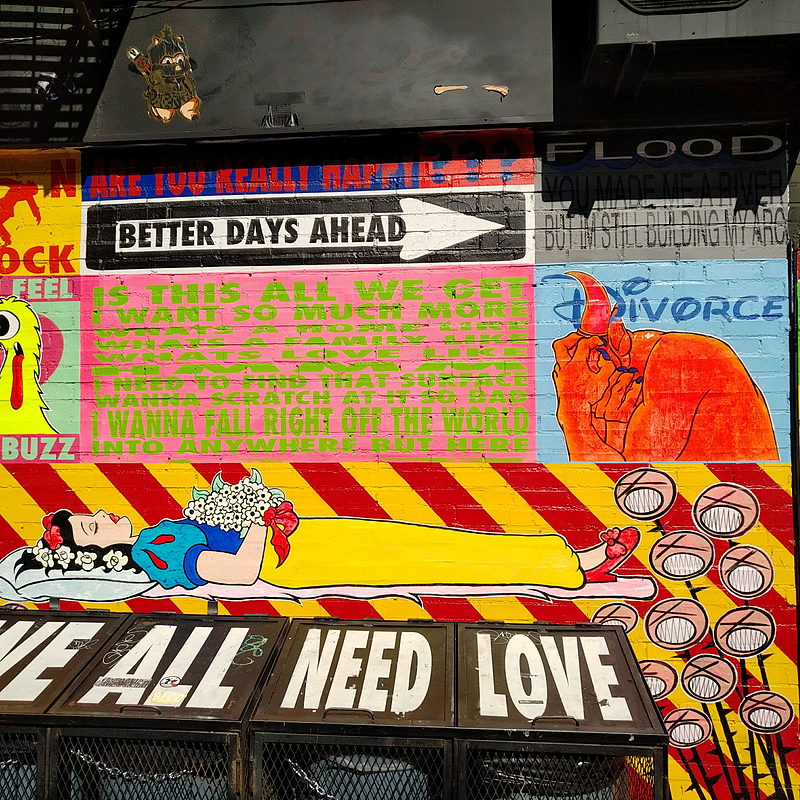 ARE YOU REALLY HAPPY???
FLOOD
YOU MADE ME A RIVER
BUT IM STILL BUILDING MY ARC
BETTER DAYS AHEAD
N
OCK
FEEL
BUZZ
IS THIS ALL WE GET
I WANT SO MUCH MORE
WHATS A HOME LIKE
WHATS A FAMILY LIKE
WHATS LOVE LIKE
I NEED TO FIND THAT SURFACE
WANNA SCRATCH AT IT SO BAD
I WANNA FALL RIGHT OFF THE WORLD
INTO ANYWHERE BUT HERE
DIVORCE
WE ALL NEED LOVE